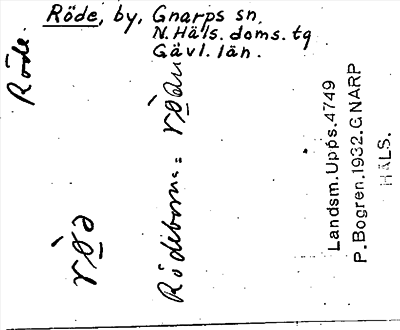 Röde, by, Gnarps sn,
N. Häls. doms. tg
Gävl. län.
Röde.
Rödeborna =
Landsm. Upps. 4749
P. Bogren. 1932. GNARP
HÄLS.